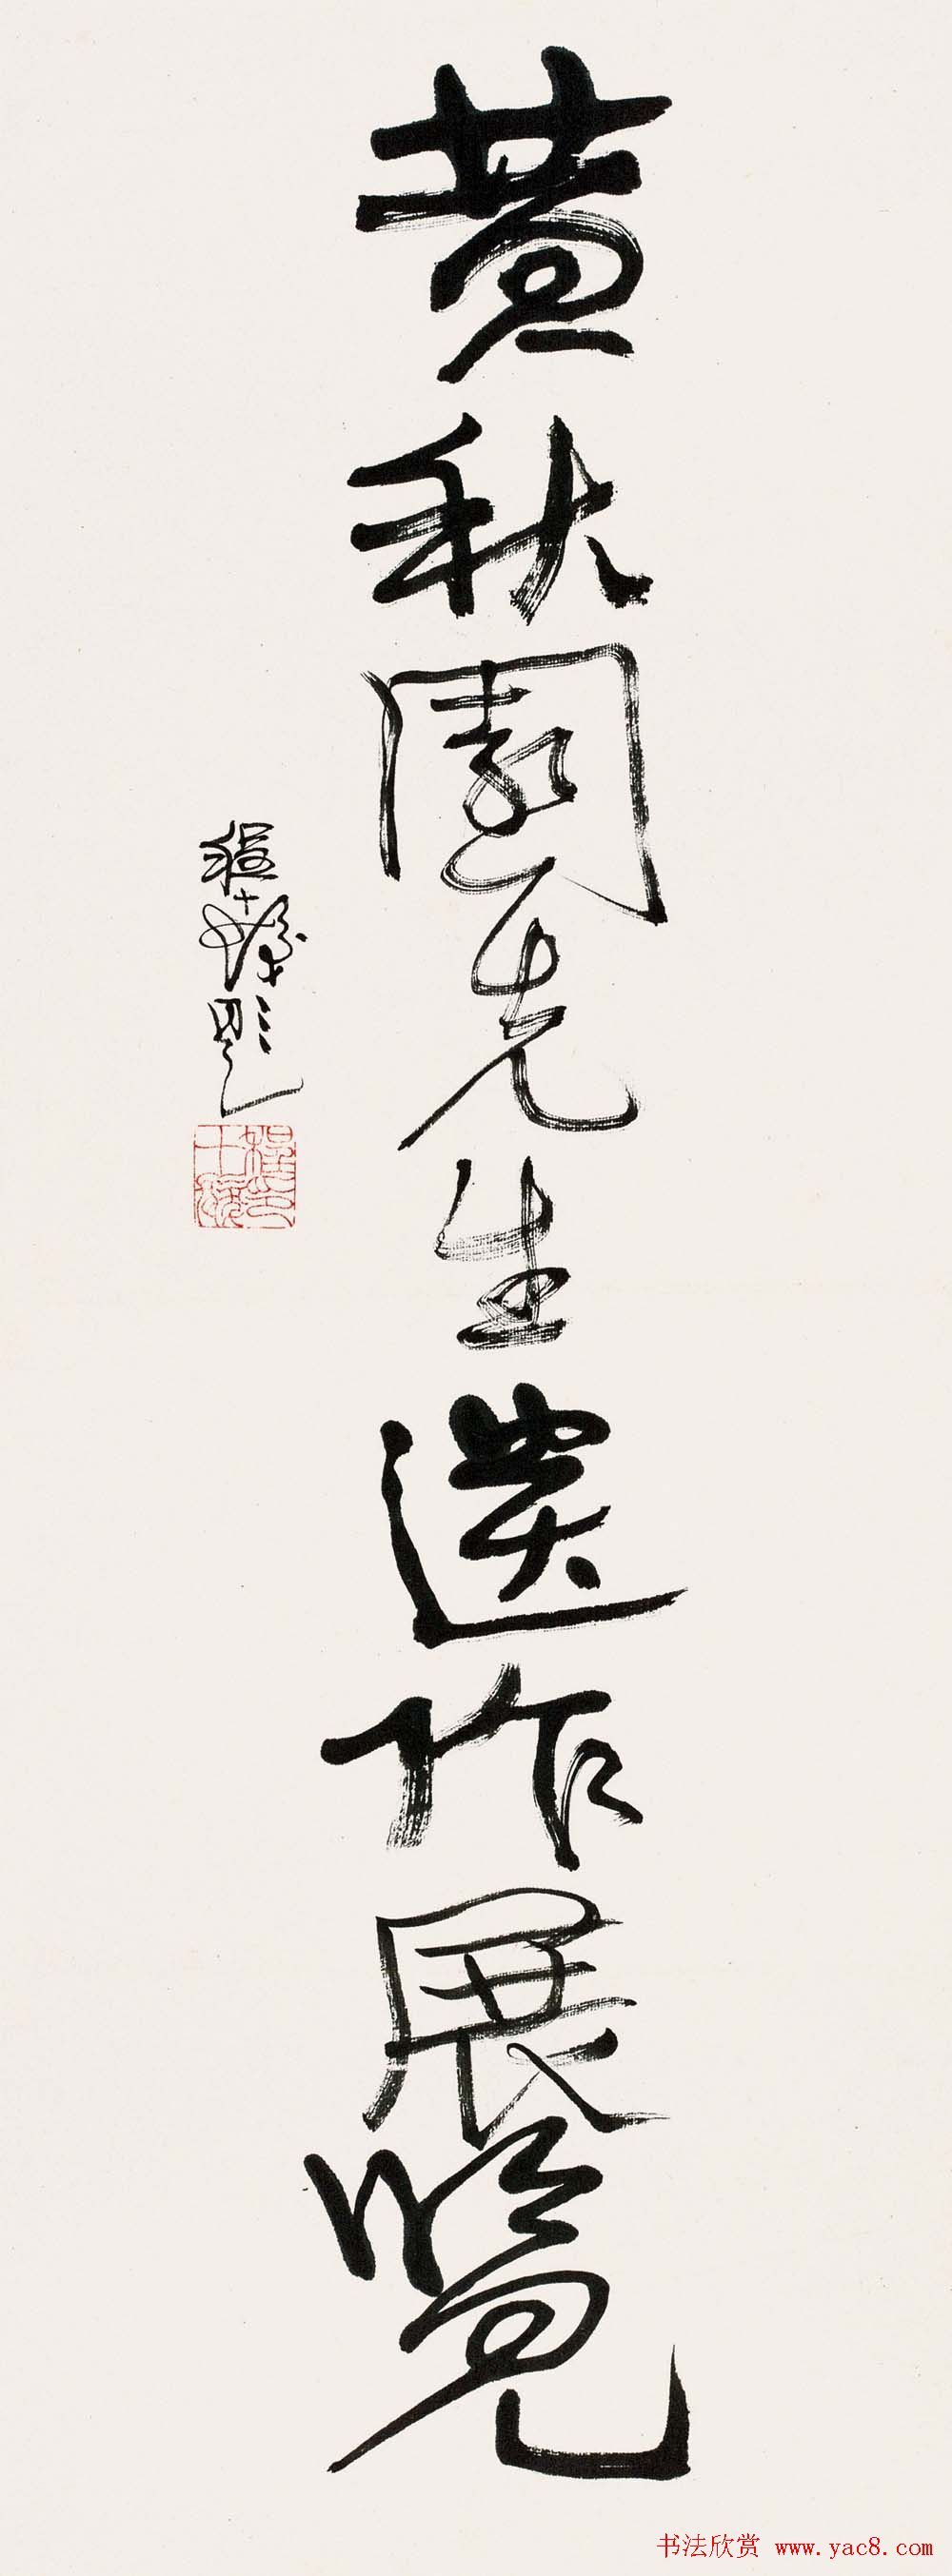 黄秋園先生遺作展覽
程十髮題
程十髮印
书法欣赏 www.yac8.com